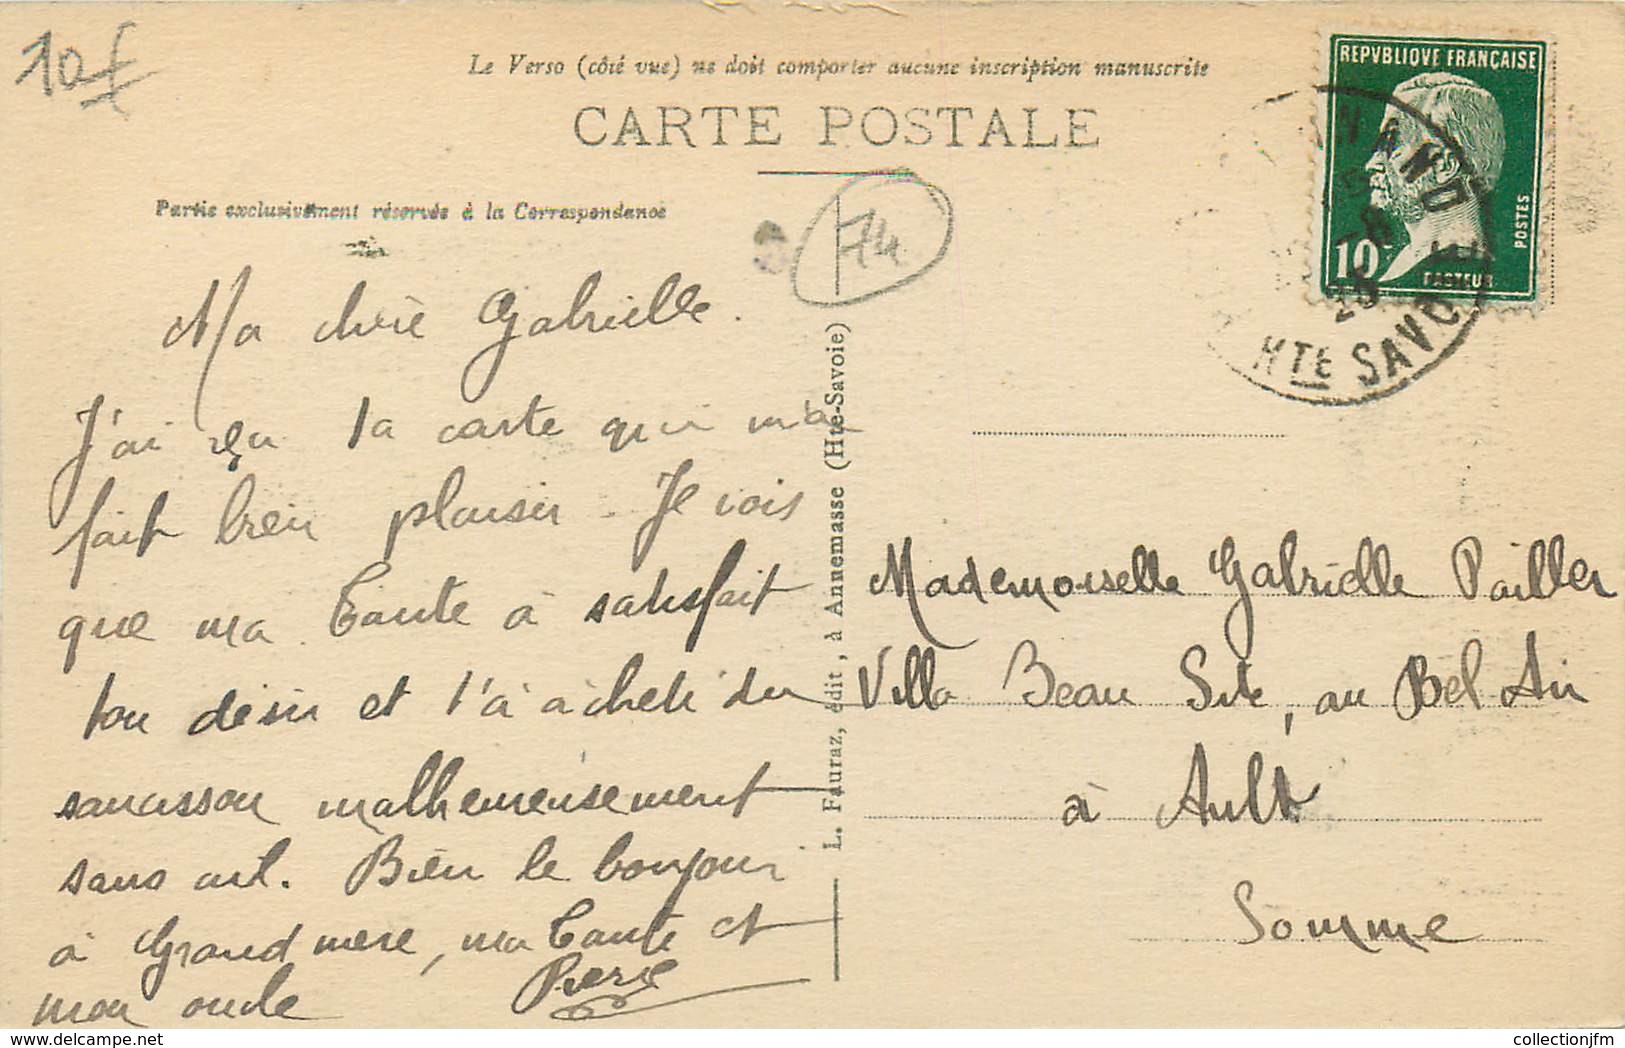 10f
Le Verso (côté vue) ne doit comporter aucune inscription manuscrite
CARTE POSTALE
Partie exclusivement réservée à la Correspondance
74
REPVBLIQVE FRANÇAISE
10c
POSTES
PASTEUR
HTE SAVOIE
Ma chère Gabrielle.
J'ai reçu la carte qui m'a
fait bien plaisir - Je vois
que ma Tante à satisfait
ton désir et t'à àcheté du
saucisson malheureusement
sans ail. Bien le bonjour
à Grand mere, ma Tante et
mon oncle Pierre
L. Fauraz, édit., à Annemasse (Hte-Savoie)
Mademoiselle Gabrielle Pailler
Villa Beau Site, au Bel Air
à Ault
Somme
delcampe.net
collectionjfm